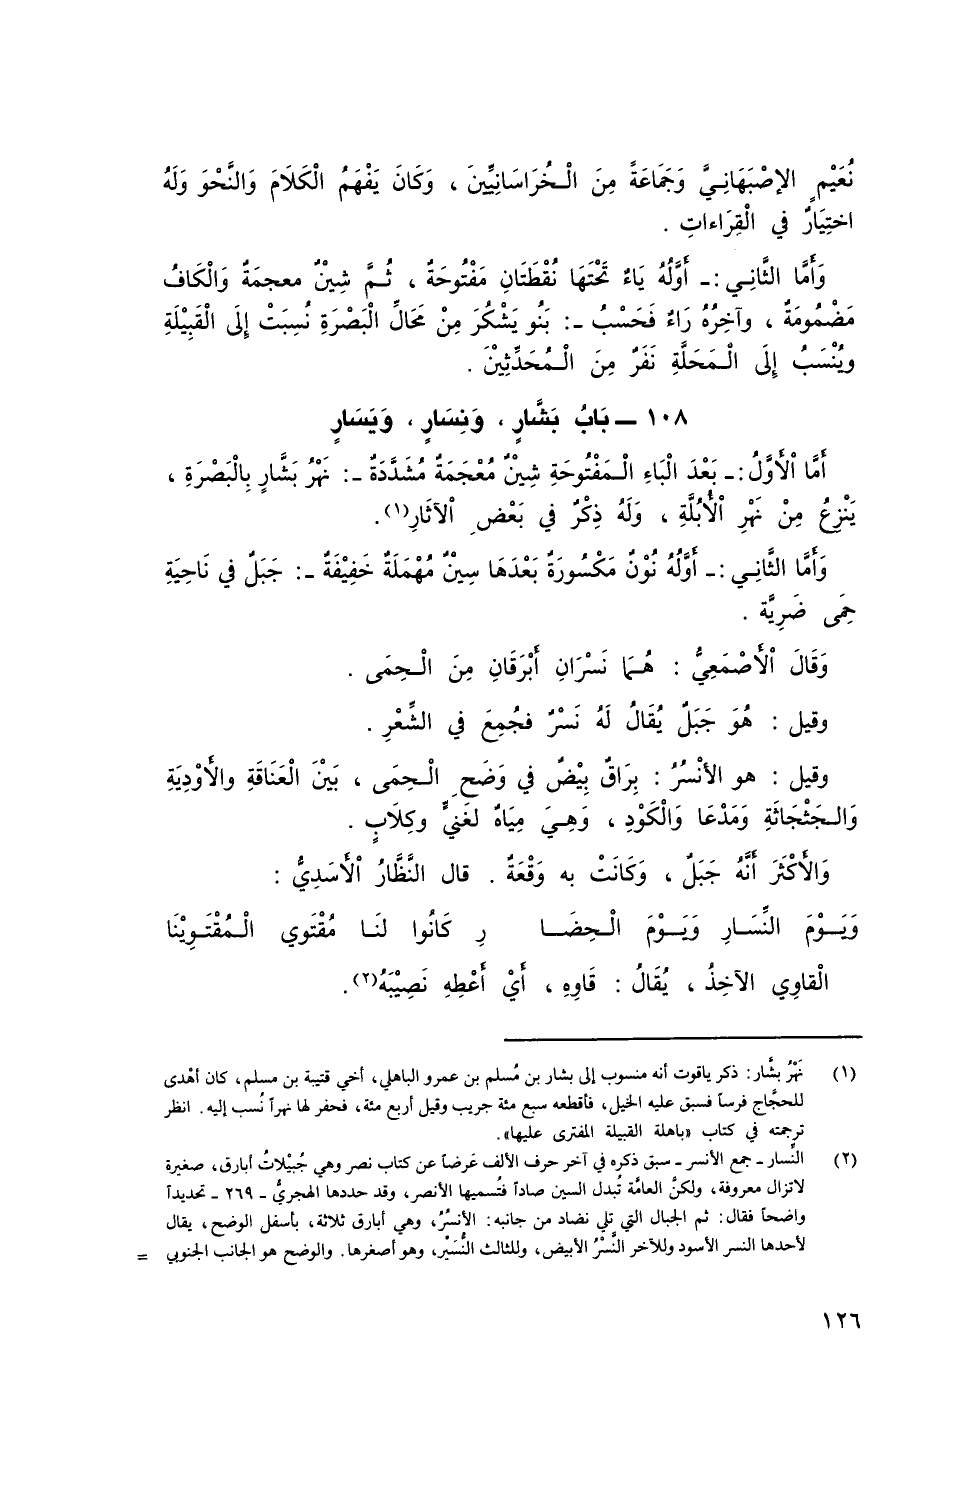 نُعَيْمٍ الإصْبَهَانِيَّ وَجَمَاعَةً مِنَ الْخُرَاسَانِيِّينَ ، وَكَانَ يَفْهَمُ الْكَلَامَ وَالنَّحْوَ وَلَهُ
اختِيَارٌ في الْقِرَاءاتِ .
وَأَمَّا الثَّانِي :ـ أَوَّلُهُ يَاءٌ تَحْتَهَا نُقْطَتَانِ مَفْتُوحَةٌ ، ثُمَّ شِيْنٌ معجمَةٌ وَالْكَافُ
مَضْمُومَةٌ ، وآخِرُهُ رَاءٌ فَحَسْبُ ـ: بَنُو يَشْكُرَ مِنْ مَحَالِّ الْبَصْرَةِ نُسِبَتْ إِلَى الْقَبِيْلَةِ
ويُنْسَبُ إِلَى الْمَحَلَّةِ نَفَرٌ مِنَ الْمُحَدِّثِيْنَ .
١٠٨ ــ بَابُ بَشَّارٍ ، وَنِسَارٍ ، وَيَسَارٍ
أَمَّا اْلأَوَّلُ :ـ بَعْدَ الْبَاءِ الْمَفْتُوحَةِ شِيْنٌ مُعْجَمَةٌ مُشَدَّدَةٌ ـ: نَهْرُ بَشَّارٍ بِالْبَصْرَةِ ،
يَنْزِعُ مِنْ نَهْرِ اْلأُبُلَّةِ ، وَلَهُ ذِكْرٌ في بَعْضِ اْلآثَارِ(١).
وَأَمَّا الثَّانِي :ـ أَوَّلُهُ نُوْنٌ مَكْسُورَةٌ بَعْدَهَا سِيْنٌ مُهْمَلَةٌ خَفِيْفَةٌ ـ: جَبَلٌ في نَاحِيَةِ
حِمَى ضَرِيَّة .
وَقَالَ اْلأَصْمَعِيُّ : هُمَا نَسْرَانِ أَبْرَقَانِ مِنَ الْحِمَى .
وقيل : هُوَ جَبَلٌ يُقَالُ لَهُ نَسْرٌ فجُمِعَ في الشِّعْرِ .
وقيل : هو الأنْسُرُ : بِرَاقٌ بِيْضٌ في وَضَحِ الْحِمَى ، بَيْنَ الْعَنَاقَةِ والأَوْدِيَةِ
وَالْجَثْجَاثَةِ وَمَدْعَا وَالْكَوْدِ ، وَهِيَ مِيَاهٌ لغَنِيٍّ وكِلَابٍ .
وَالأَكْثَرَ أَنَّهُ جَبَلٌ ، وَكَانَتْ به وَقْعَةٌ . قال النَّظَّارُ اْلأَسَدِيُّ :
وَيَوْمَ النِّسَارِ وَيَوْمَ الْحِضَـا رِ كَانُوا لنَا مُقْتَوي الْمُقْتَوِيْنَا
الْقاوِي الآخِذُ ، يُقَالُ : قَاوِهِ ، أَيْ أَعْطِهِ نَصِيْبَهُ(٢).
(١) نَهْرُ بشَّار: ذكر ياقوت أنه منسوب إلى بشار بن مُسلم بن عمرو الباهلي، أخي قتيبة بن مسلم، كان أهْدى
للحجَّاج فرساً فسبق عليه الخيل، فأقطعه سبع مئة جريب وقيل أربع مئة، فحفر لها نهراً نُسب إليه. انظر
ترجمته في كتاب «باهلة القبيلة المفترى عليها».
(٢) النِّسار ـ جمع الأنسر ـ سبق ذكره في آخر حرف الألف عَرضاً عن كتاب نصر وهي جُبيْلاتُ أبارق، صغيرة
لاتزال معروفة، ولكنَّ العامَّة تُبدل السين صاداً فتُسميها الأنصر، وقد حددها الهجريُّ ـ ٢٦٩ ـ تحديداً
واضحاً فقال: ثم الجبال التي تلي نضاد من جانبه: الأنسُرُ، وهي أبارق ثلاثة، بأسفل الوضح، يقال
لأحدها النسر الأسود وللآخر النَّسْرُ الأبيض، وللثالث النُّسَيْر، وهو أصغرها. والوضح هو الجانب الجنوبي =
١٢٦